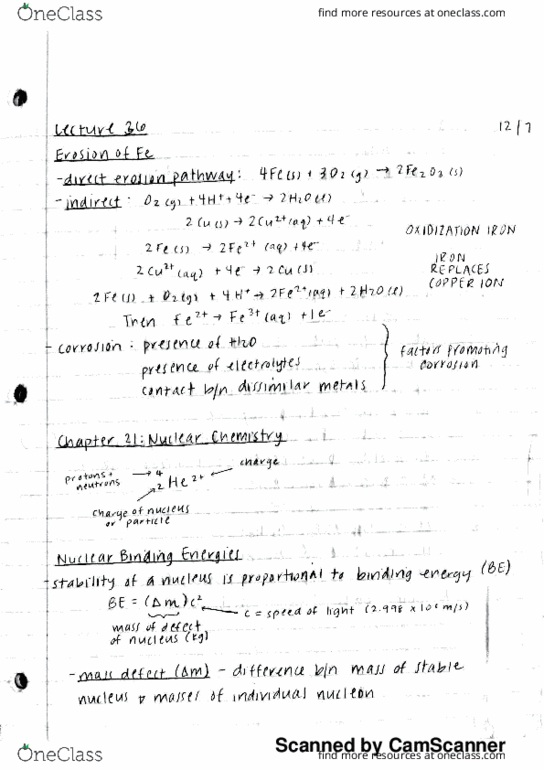 OneClass
find more resources at oneclass.com
Lecture 36
12/7
Erosion of Fe
- direct erosion pathway: 4Fe(s) + 3O2(g) → 2Fe2O3(s)
- indirect: O2(g) + 4H+ + 4e- → 2H2O(l)
2Cu(s) → 2Cu2+(aq) + 4e-
OXIDIZATION IRON
2Fe(s) → 2Fe2+ (aq) + 4e-
IRON
REPLACES
COPPER ION
2Cu2+(aq) + 4e- → 2Cu(s)
2Fe(s) + O2(g) + 4H+ → 2Fe2+(aq) + 2H2O(l)
Then Fe2+ → Fe3+(aq) + 1e-
- corrosion: presence of H2O
presence of electrolytes
contact b/n dissimilar metals
factors promoting
corrosion
Chapter 21: Nuclear Chemistry
charge
protons +
neutrons
→ 4 2 He 2+
charge of nucleus
or particle
Nuclear Binding Energies
- stability of a nucleus is proportional to binding energy (BE)
BE = (Δm)c2
c = speed of light (2.998 x 10 m/s)
mass of defect
of nucleus (kg)
- mass defect (Δm) - difference b/n mass of stable
nucleus & masses of individual nucleon
OneClass
Scanned by CamScanner
find more resources at oneclass.com